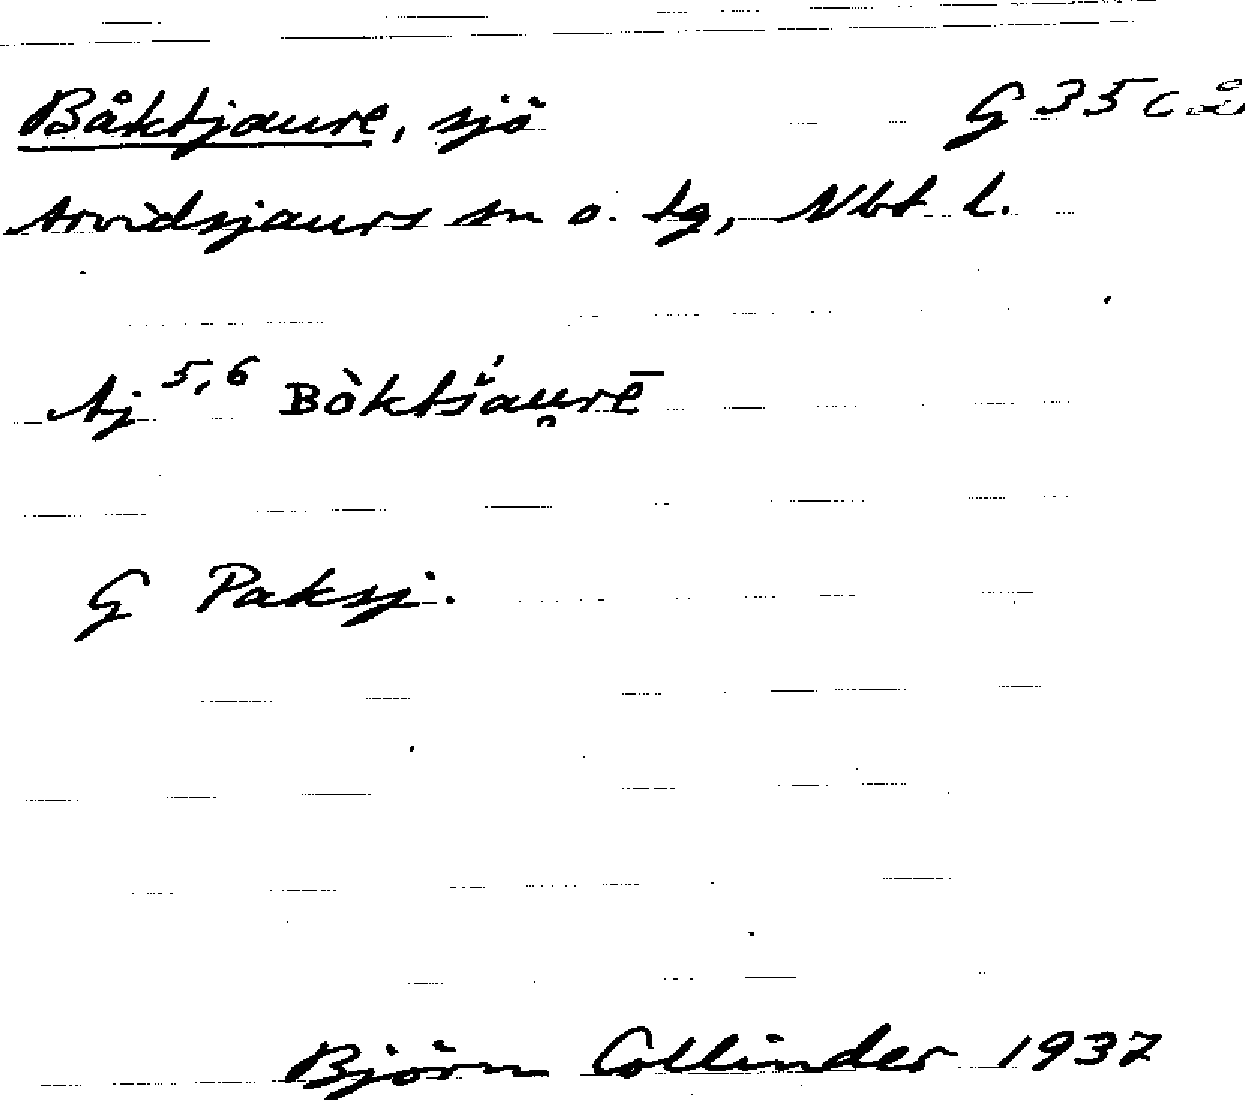 Båktjaure, sjö G 35 c å
Arvidsjaurs sn o. tg, Nbt l.
Aj 5,6 Bòktśau̯rē
G Paksj.
Björn Collinder 1937